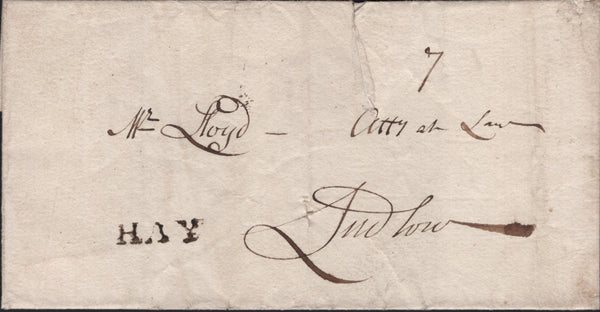 7
Mr. Lloyd - Atty at Law
HAY
Ludlow